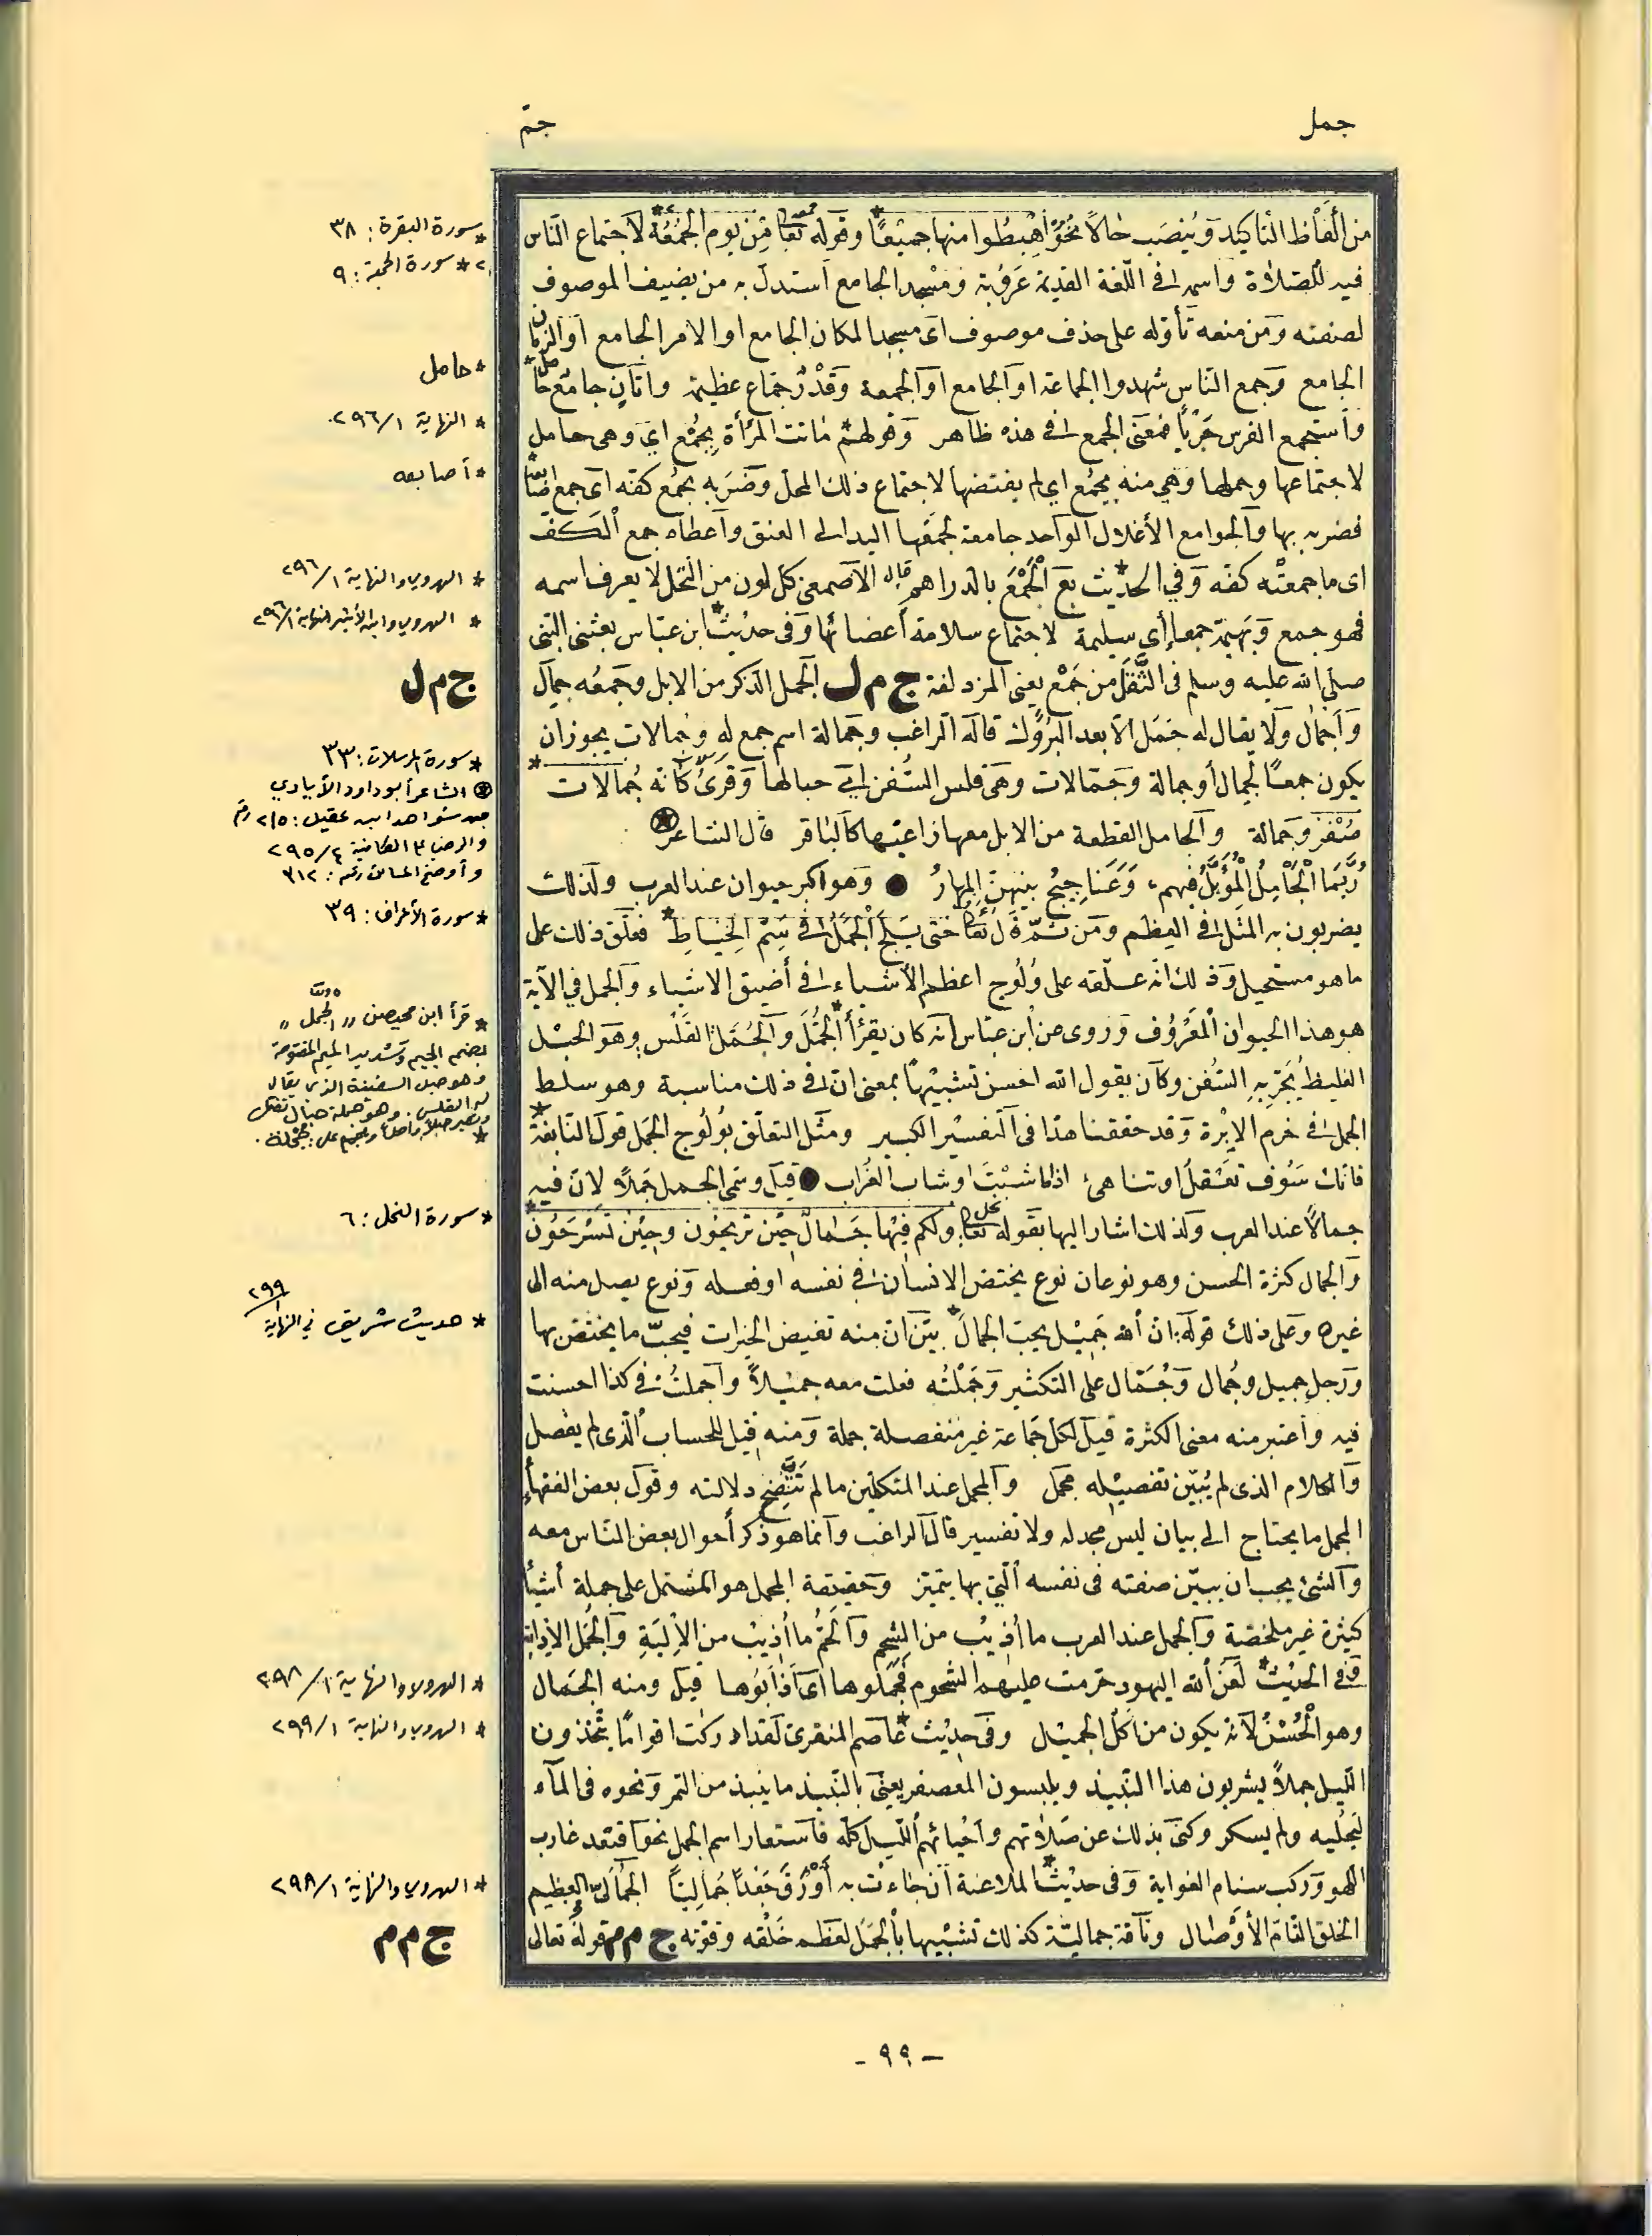 جمل
جمّ
من ألفاظ التأكيد وينصب حالاً نحو اهبطوا منها جميعًا* وقوله تعا من يوم الجمعة* لاجتماع الناس
فيه للصلاة واسمه في اللغة القديمة عروبة ومسجد الجامع استدل به من يضيف الموصوف
لصفته ومن منعه تأوله على حذف موصوف اى مسجد المكان الجامع او الامر الجامع او الزمان
الجامع وجمع الناس شهدوا الجماعة او الجامع او الجمعة وقدر جماع عظيمة واتان جامع حامل*
واستجمع الفرس جريًا فمعنى الجمع في هذه ظاهر وقولهم ماتت المرأة بجمع اي وهى حامل
لاجتماعها وحملها وهي منه بجمع اي لم يفتضها لاجتماع ذلك المحل وضربه بجمع كفه اى جمع
فضربه بها والجوامع الأغلال الواحد جامعة لجمعها اليد الى العنق واعطاه جمع الكف
اى ما جمعته كفه وفي الحديث* بع الجمع بالدراهم قال الأصمعى كل لون من النخل لا يعرف اسمه
فهو جمع وبهيمة جمعا أي سليمة لاجتماع سلامة أعضائها وفى حديث* ابن عباس بعثنى النبى
صلى الله عليه وسلم فى الثقل من جمع يعنى المزدلفة ج م ل الجمل الذكر من الابل وجمعه جمال
وأجمال ولا يقال له جمل الا بعد البزول قاله الراغب وجمالة اسم جمع له وجمالات يجوز ان
يكون جمعًا لجمال أو جمالة وجمالات وهى قلس السفن اي حبالها وقرئ كأنه جمالات*
صفر وجمالة والجامل القطعة من الابل معها راعيها كالباقر قال الشاعر
ربما الجامل المؤبل فيهم، وعناجيج بينهن المهار ● وهو اكبر حيوان عند العرب ولذلك
يضربون به المثل في العظم ومن ثمة قال تعا حتى يلج الجمل في سم الخياط* فعلق ذلك على
ما هو مستحيل وذلك انه علقه على ولوج اعظم الأشياء في أضيق الاشياء والجمل في الآية
هو هذا الحيوان المعروف وروى عن ابن عباس انه كان يقرأ الجمل* والجمل القلس وهو الحبل
الغليظ يجر به السفن وكان يقول الله احسن تشبيهًا بمعنى ان في ذلك مناسبة وهو سلط
الجمل في خرم الإبرة وقد حققنا هذا فى التفسير الكبير ومثل التعلق بولوج الجمل قول النابغة*
فانك سوف تعقل او تناهى اذا ما شبت او شاب الغراب ● قيل وسمى الجمل جملاً لان فيه
جمالاً عند العرب ولذلك اشار اليها بقوله تعا ولكم فيها جمال حين تريحون وحين تسرحون*
والجمال كثرة الحسن وهو نوعان نوع يختص الانسان في نفسه او فعله ونوع يصل منه الى
غيره وعلى ذلك قوله: ان الله جميل يحب الجمال* بين ان منه تفيض الخيرات فيحب ما يختص بها
ورجل جميل وجمال وجمال على التكثير وجملته فعلت معه جميلاً واجملت في كذا احسنت
فيه واعتبر منه معنى الكثرة فقيل لكل جماعة غير منفصلة جملة ومنه قيل للحساب الذى لم يفصل
والكلام الذى لم يبين تفصيله مجمل والمجمل عند المتكلمين ما لم تتضح دلالته وقول بعض الفقهاء
المجمل ما يحتاج الى بيان ليس بحد له ولا تفسير قال الراغب وانما هو ذكر أحوال بعض الناس معه
والشئ يجب ان يبين صفته فى نفسه التى بها يتميز وحقيقة المجمل هو المشتمل على جملة أشياء
كثيرة غير ملخصة والجمل عند العرب ما أذيب من الشحم والحم ما أذيب من الإلية والجمل الإذابة
ففى الحديث* لعن الله اليهود حرمت عليهم الشحوم فجملوها اى اذابوها قيل ومنه الجمال
وهو الحسن لأنه يكون من أكل الجميل وفى حديث* عاصم المنقرى لقد ادركت اقوامًا يتخذون
الليل جملاً يشربون هذا النبيذ ويلبسون المعصفر يعنى بالنبيذ ما ينبذ من التمر ونحوه فى الماء
ليحليه ولم يسكر وكنى بذلك عن صلاتهم واحيائهم الليل كله فاستعار اسم الجمل نحو اقتعد غارب
اللهو وركب سنام الغواية وفى حديث* الملاعنة ان جاءت به أورق جعدًا جماليًا الجمالى العظيم
الخلق التام الأوصال وناقة جمالية كذلك تشبيها بالجمل لعظم خلقه وقوته ج م م قوله تعالى
* سورة البقرة: ٣٨
٢* سورة الجمعة: ٩
* حامل
* النهاية ٢٩٦/١.
* أصابعه
* الهروي والنهاية ٢٩٦/١
* الهروي وابن الأثير النهاية ٢٩٦/١
ج م ل
* سورة المرسلات: ٣٣
⊛ الشاعر أبو داود الأيادي
من شواهد ابن عقيل: ٢١٥ رقم
والرضي الكافية ٢٩٥/٤
وأوضح المسالك رقم: ٣١٢
* سورة الأعراف: ٣٩
* قرأ ابن محيصن ,, الجمل ,,
بضم الجيم وتشديد الميم المفتوحة
وهو حبل السفينة الذي يقال
له القلس. وهو جملة حبال
* سورة النحل: ٦
* حديث شريف في النهاية ٢٩٩/١
* الهروي والنهاية ٢٩٨/١
* الهروي والنهاية ٢٩٩/١
* الهروي والنهاية ٢٩٨/١
ج م م
- ٩٩ -